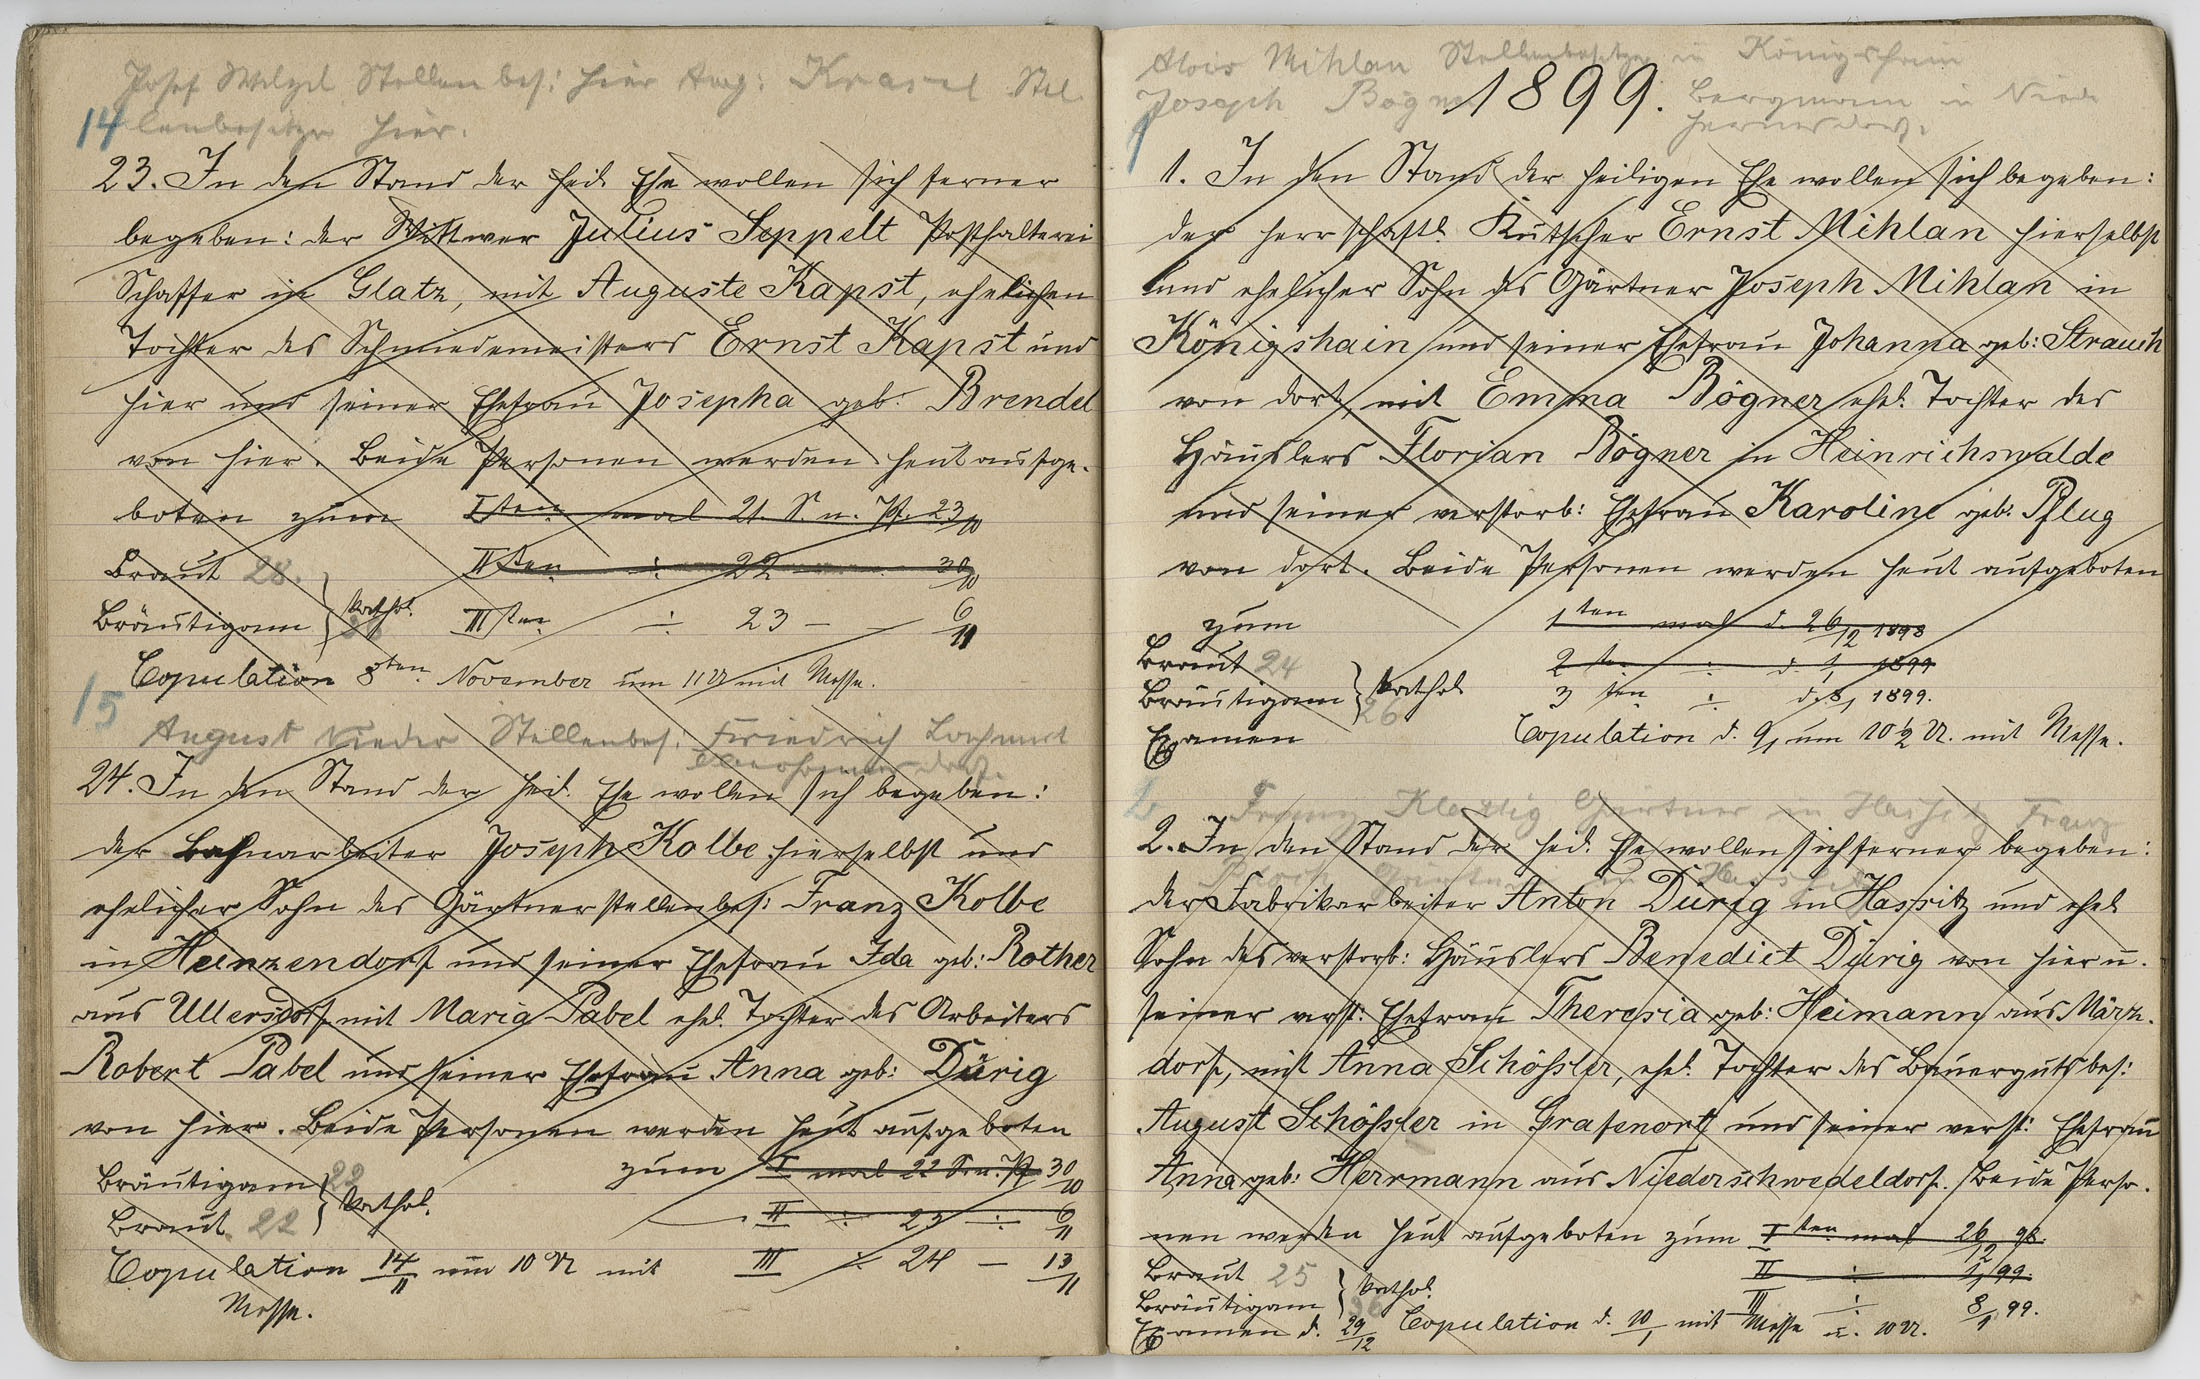 Josef Welzel Stellenbes: hier Aug: Krasel Stel
14 lenbesitzer hier.
23. In den Stand der heil. Ehe wollen sich ferner
begeben: der Wittwer Julius Seppelt Posthalterei
Schaffer in Glatz, mit Auguste Kapst, ehelichen
Tochter des Schmiedemeisters Ernst Kapst und
hier und seiner Ehefrau Josepha geb: Brendel
von hier. Beide Personen werden heut aufge-
boten zum Iten mal 21. S. n. Pf. 23/10
Braut 28. IIten ÷ 22 30/10
Bräutigam kathol. IIIten ÷ 23 – – 6/11
Copulation 8ten November um 11 U mit Messe.
15
August Nieder Stellenbes: Friedrich
24. In den Stand der heil. Ehe wollen sich begeben:
der Bahnarbeiter Joseph Kolbe hierselbst und
ehelicher Sohn des Gärtnerstellenbes: Franz Kolbe
in Heinzendorf und seiner Ehefrau Ida geb: Rother
aus Ullersdorf mit Maria Pabel ehel. Tochter des Arbeiters
Robert Pabel und seiner Ehefrau Anna geb: Dürig
von hier. Beide Personen werden heut aufgeboten
Bräutigam 22 zum I mal 22 S. n. Pf 30/10
Braut 22 kathol. II ÷ 23 ÷ 6/11
Copulation 14/11 um 10 U mit III ÷ 24 – 13/11
Messe.
Alois Mihlan Stellenbesitzer in Königshain
1899.
Joseph Bögner Bergmann in Niede
1 hermsdorf.
1. In den Stand der heiligen Ehe wollen sich begeben:
der herrschaftl. Kutscher Ernst Mihlan hierselbst
und ehelicher Sohn des Gärtner Joseph Mihlan in
Königshain und seiner Ehefrau Johanna geb: Strauch
von dort, mit Emma Bögner ehel. Tochter des
Häuslers Florian Bögner in Heinrichswalde
und seiner verstorb: Ehefrau Karoline geb. Pflug
von dort. Beide Personen werden heut aufgeboten
zum 1ten mal d. 26/12 1898
Braut 24 2ten ÷ d. 1/1 1899
Bräutigam 26 kathol. 3ten ÷ d. 8/1 1899.
Examen Copulation d. 9/1 um 10 1/2 U. mit Messe.
2 Franz Gärtner in Hassitz Franz
2. In den Stand der heil. Ehe wollen sich ferner begeben:
Gärtner in Hassitz
der Fabrikarbeiter Anton Dürig in Hassitz und ehel
Sohn des verstorb: Häuslers Benedict Dürig von hier u.
seiner verst: Ehefrau Theresia geb: Heimann aus März-
dorf, mit Anna Schössler, ehel. Tochter des Bauergutsbes:
August Schössler in Grafenort und seiner verst: Ehefrau
Anna geb: Herrmann aus Niederschwedeldorf. Beide Perso-
nen werden heut aufgeboten zum Iten mal 26/12 98.
Braut 25 II ÷ 1/1 99.
Bräutigam 36 kathol. III ÷ 8/1 99.
Examen d. 29/12 Copulation d. 10/1 mit Messe u. 10 U.